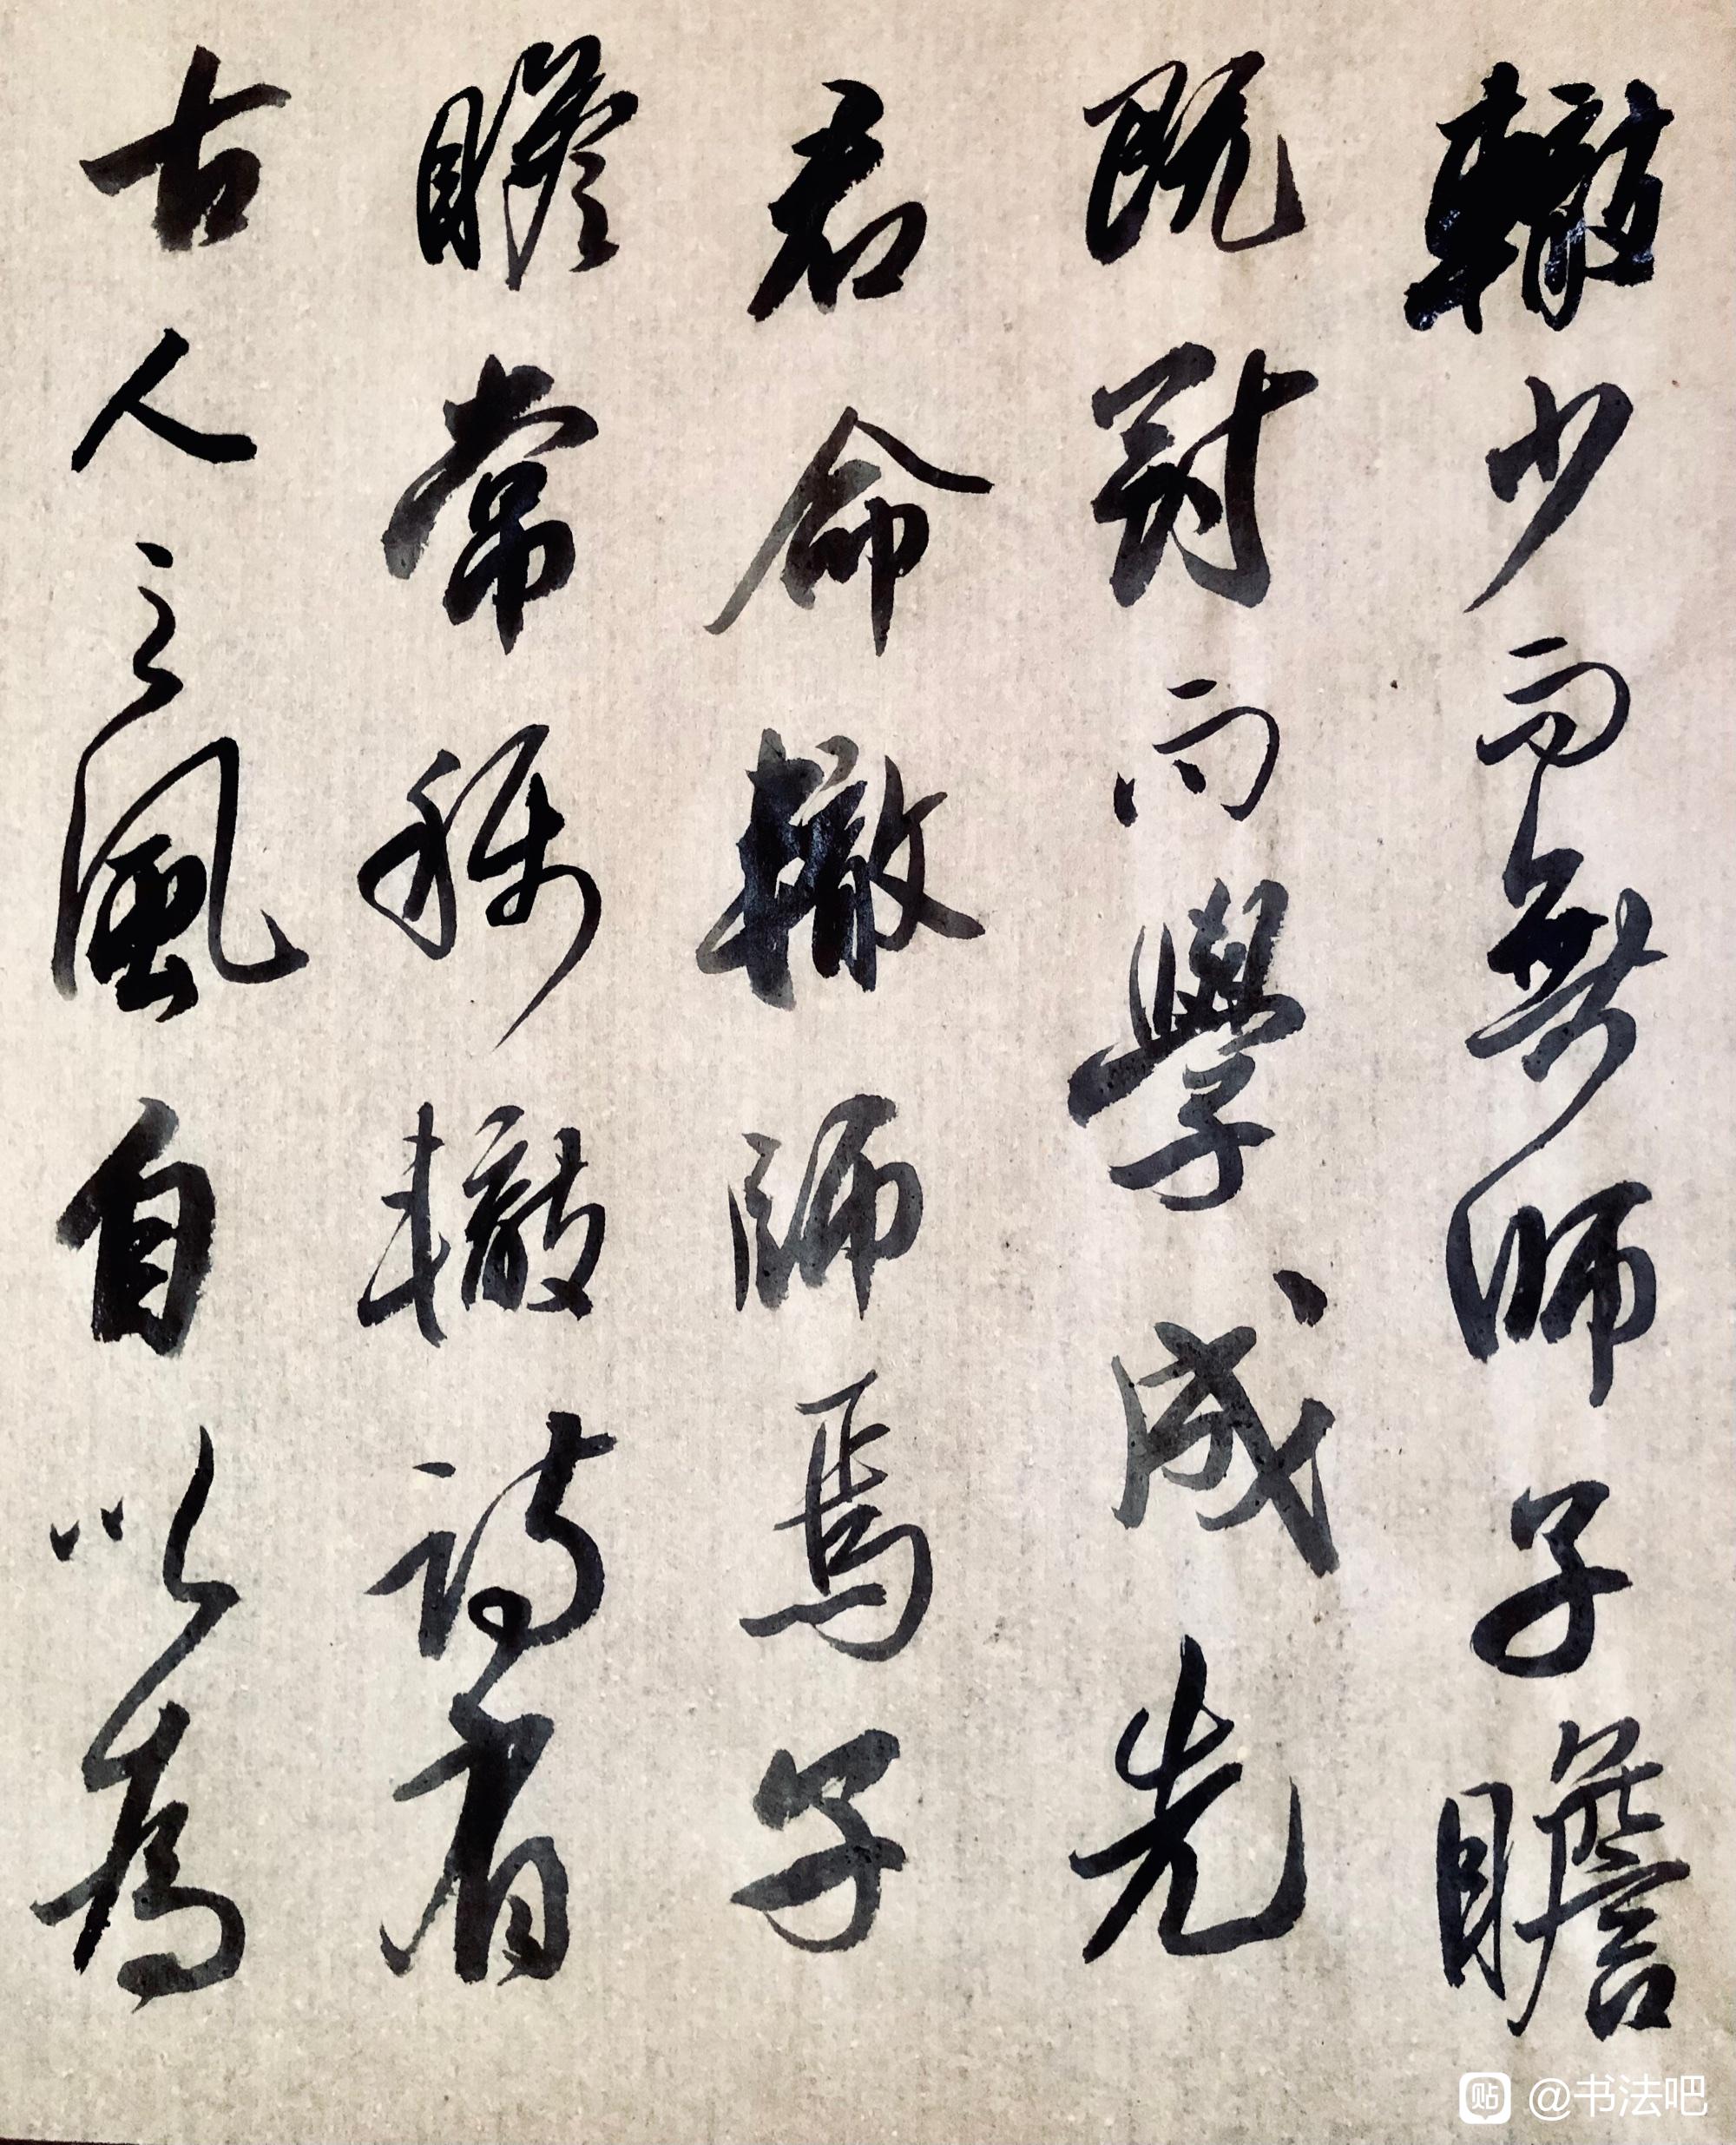 轍少而無師子瞻
既冠而學成先
君命轍師焉子
瞻常稱轍詩有
古人之風自以為
贴 @书法吧